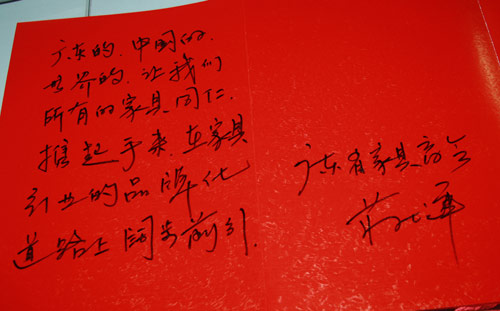 广东的、中国的、
世界的、让我们
所有的家具同仁、
携起手来、在家具
行业的品牌化
道路上阔步前行.
广东省家具商会